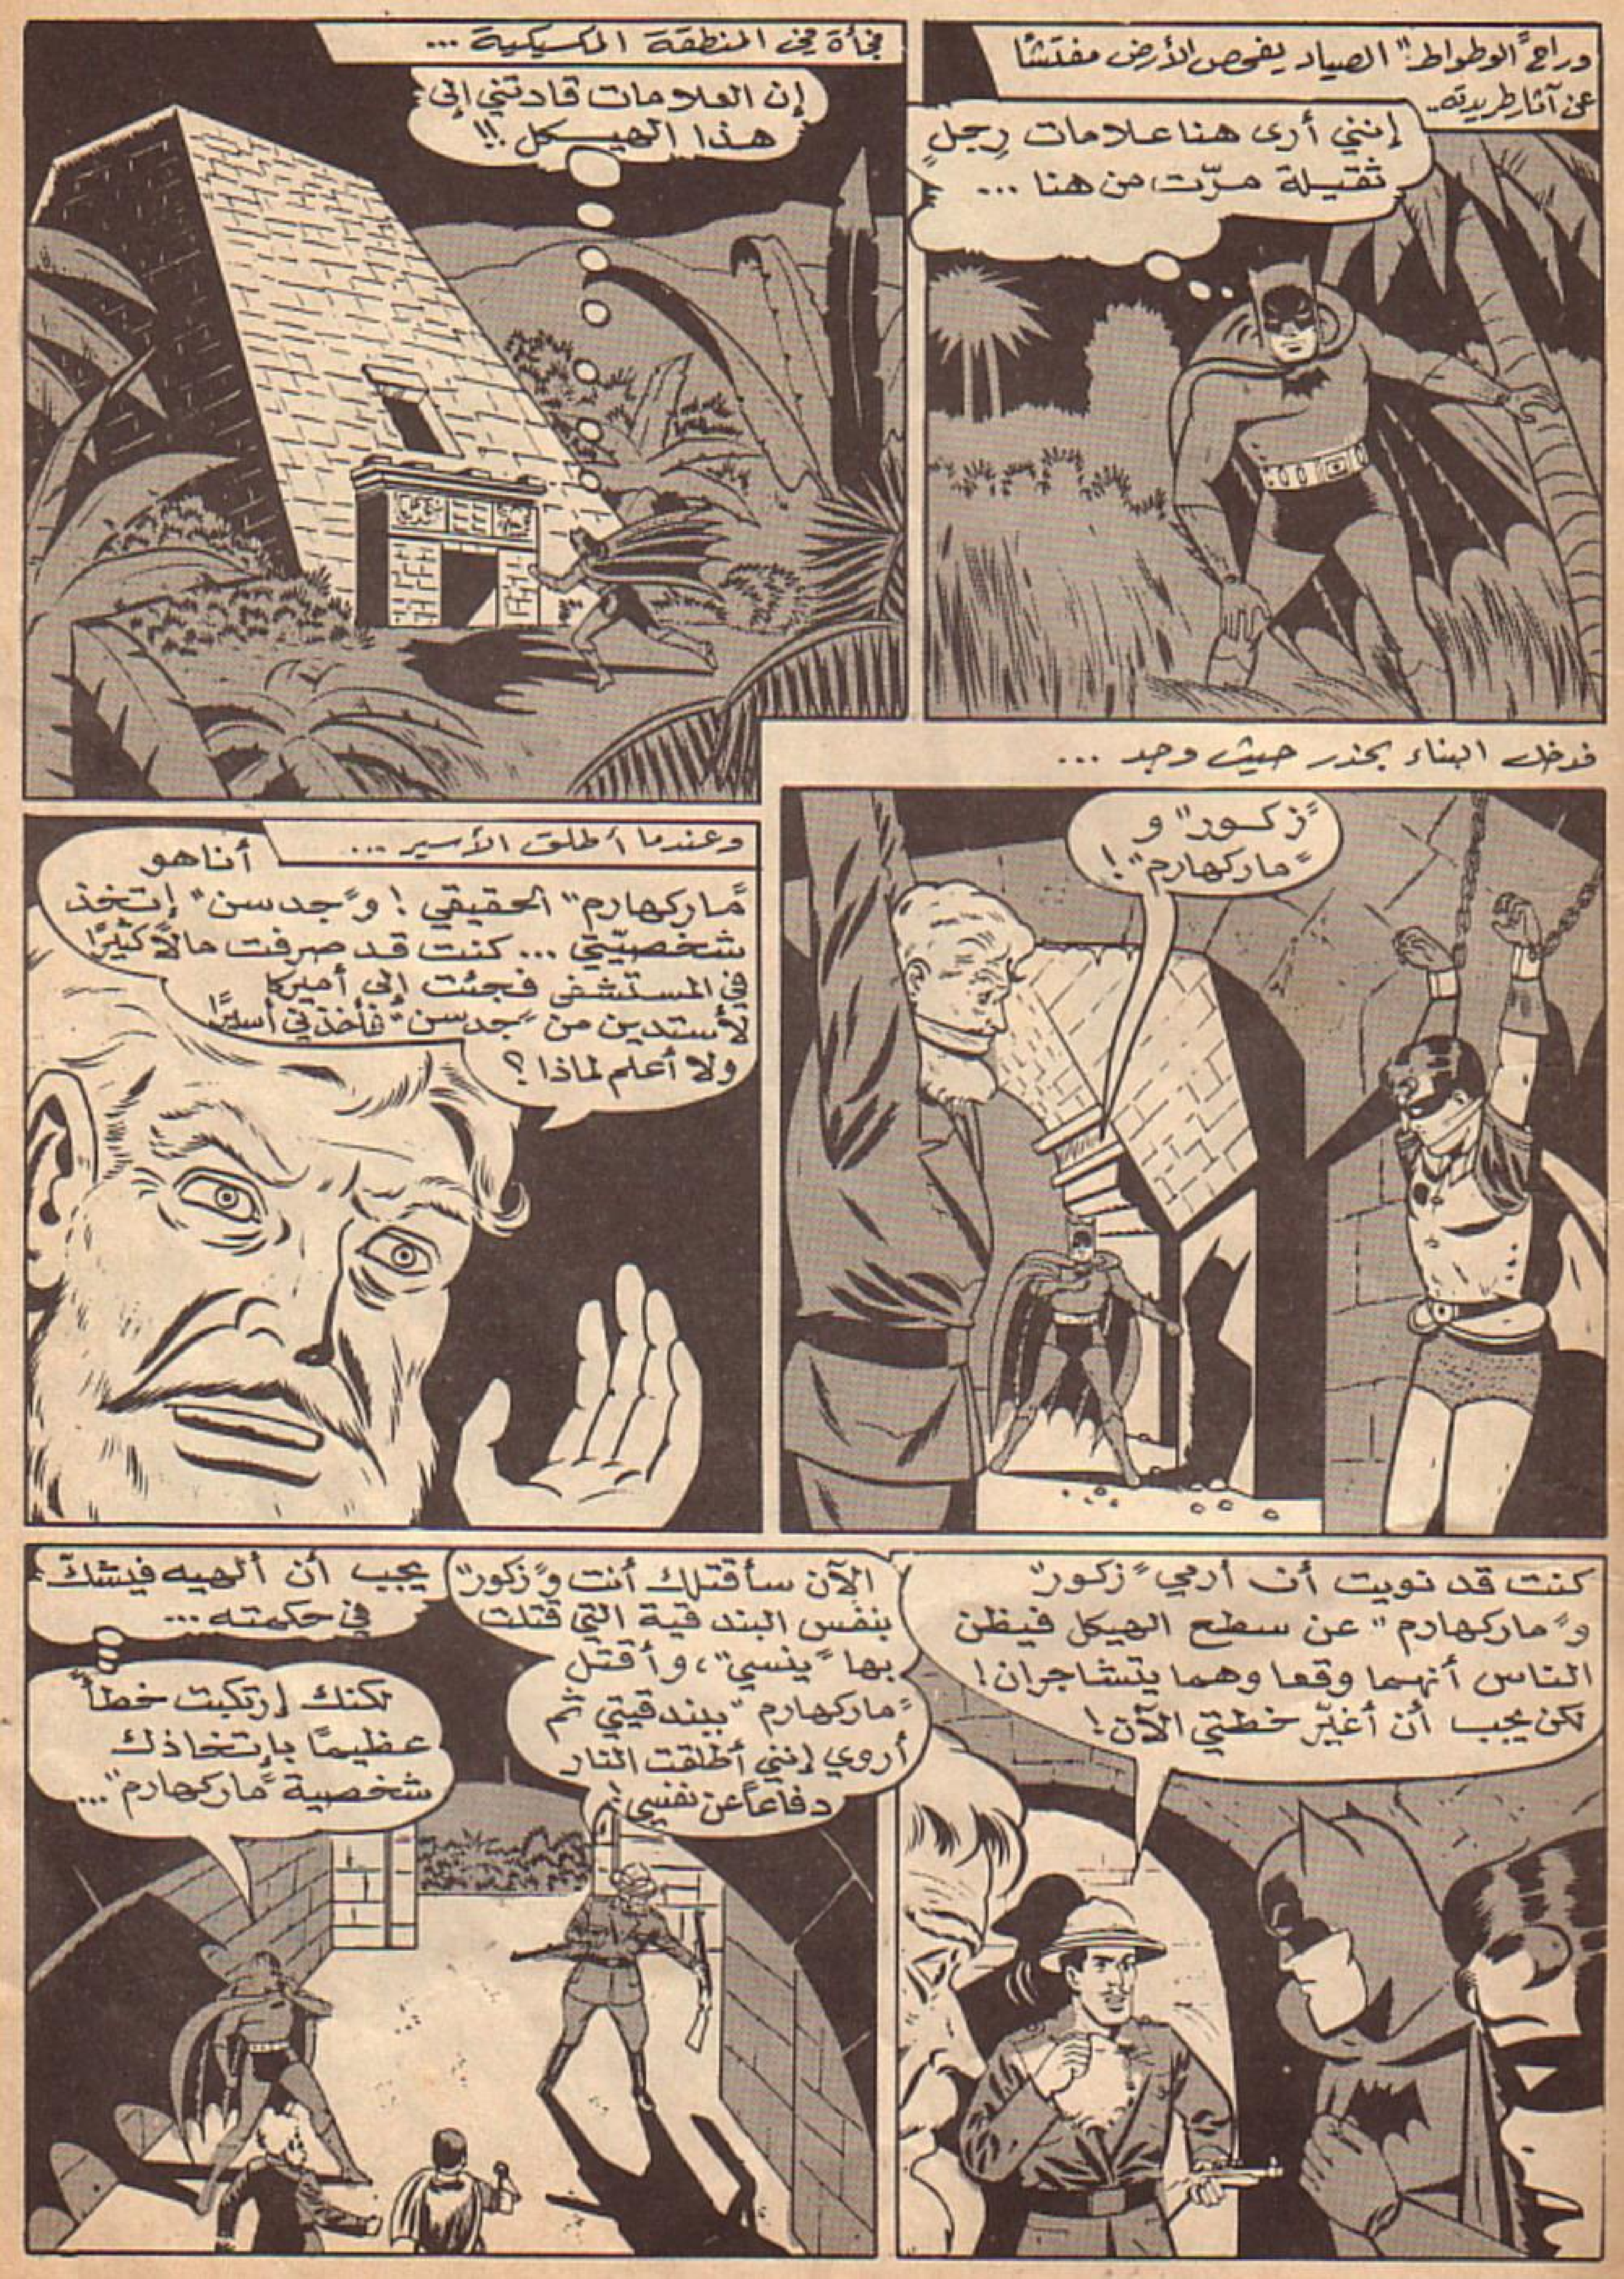 وراح "الوطواط" الصياد يفحص الأرض مفتشًا
عن آثار طريدته..
إنني أرى هنا علامات رجل
ثقيلة مرّت من هنا ...
فجأة في المنطقة المكسيكية ...
إن العلامات قادتني إلى
هذا الهيكل !!
فدخل البناء بحذر حيث وجد ...
"زكور" و
"ماركهارم"!
وعندما أطلق الأسير ...
أنا هو
"ماركهارم" الحقيقي ! و"جدسن" إتخذ
شخصيّتي ... كنت قد صرفت مالاً كثيرًا
في المستشفى فجئت إلى أميركا
لأستدين من "جدسن" فأخذني أسيرًا
ولا أعلم لماذا ؟
كنت قد نويت أن أرمي "زكور"
و"ماركهارم" عن سطح الهيكل فيظن
الناس أنهما وقعا وهما يتشاجران !
لكن يجب أن أغيّر خطتي الآن !
الآن سأقتلك أنت و"زكور"
بنفس البندقية التي قتلت
بها "ينسي"، وأقتل
"ماركهارم" ببندقيتي ثم
أروي إنني أطلقت النار
دفاعاً عن نفسي !
يجب أن ألهيه فيشكّ
في حكمته ...
لكنك إرتكبت خطأً
عظيمًا بإتخاذك
شخصية "ماركهارم" ...